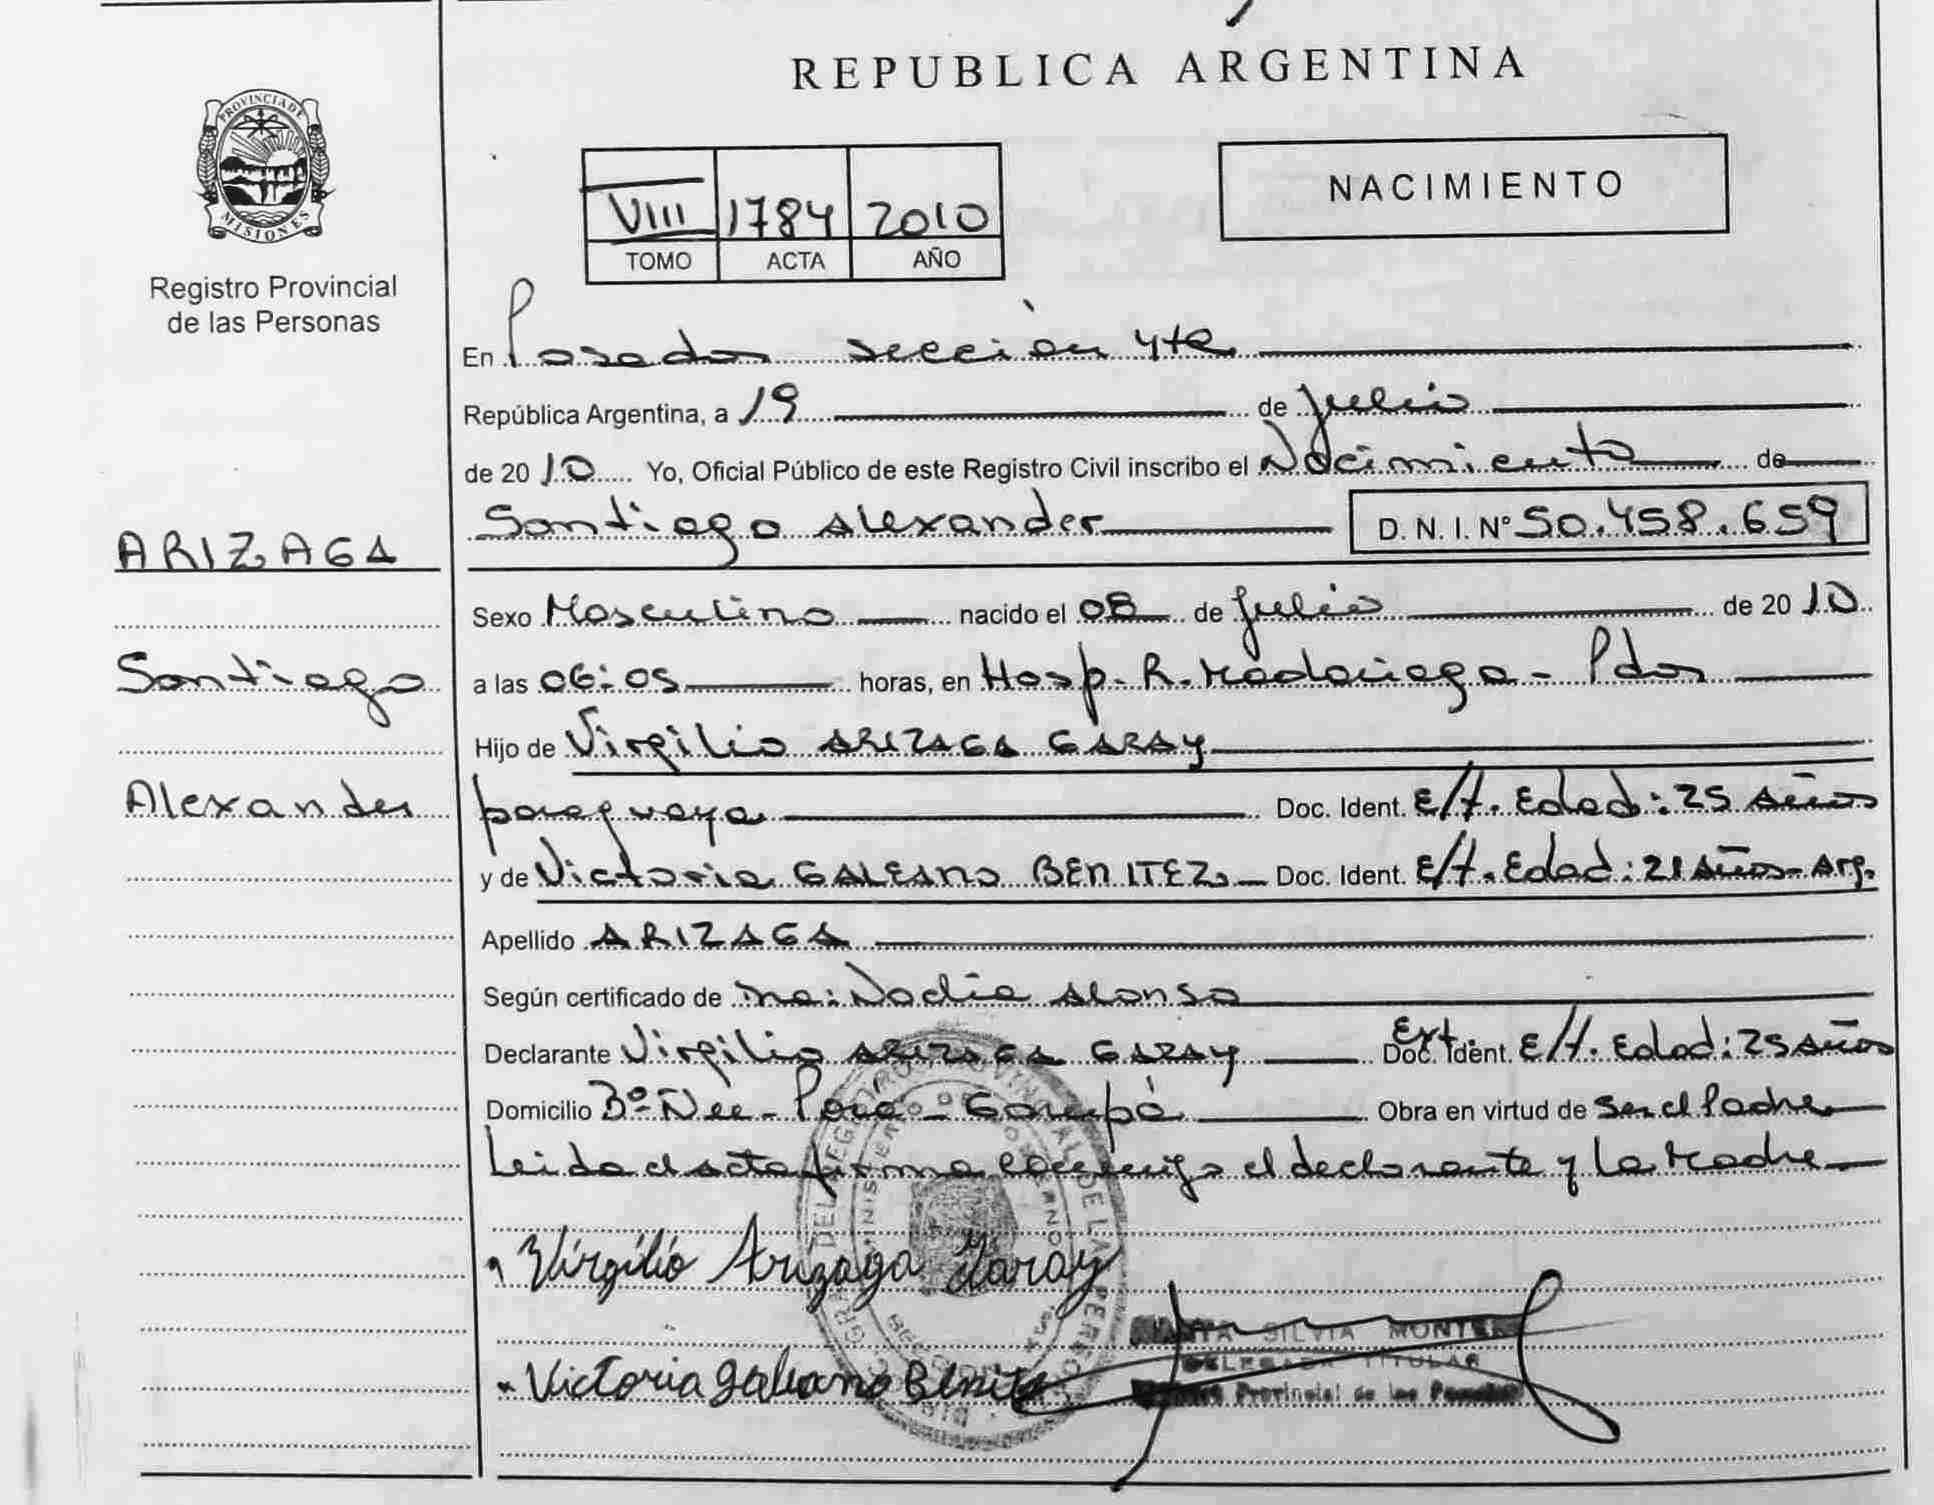 REPUBLICA ARGENTINA
PROVINCIA DE MISIONES
Registro Provincial
de las Personas
VIII 1784 2010
TOMO ACTA AÑO
NACIMIENTO
En Posadas sección 4ta
República Argentina, a 19 de Julio
de 2010 Yo, Oficial Público de este Registro Civil inscribo el Nacimiento de
Santiago Alexander D. N. I. N° 50.458.659
ARIZAGA
Santiago
Alexander
Sexo Masculino nacido el 08 de Julio de 2010
a las 06:05 horas, en Hosp. R. Madariaga - Pdas
Hijo de Virgilio ARIZAGA GARAY
paraguaya Doc. Ident. E/t. Edad: 25 años
y de Victoria GALEANO BENITEZ Doc. Ident. E/t. Edad: 21 años - Arg.
Apellido ARIZAGA
Según certificado de Nadia Alonso
Declarante Virgilio ARIZAGA GARAY Ext. Doc. Ident. E/t. Edad: 25 años
Domicilio Bº Ñee - Porá - Garupá Obra en virtud de ser el Padre
Leida el acta firma conmigo el declarante y la Madre
Virgilio Arizaga Garay
SILVIA
DELEGADA TITULAR
Victoria galeano Benitez
Provincial de las